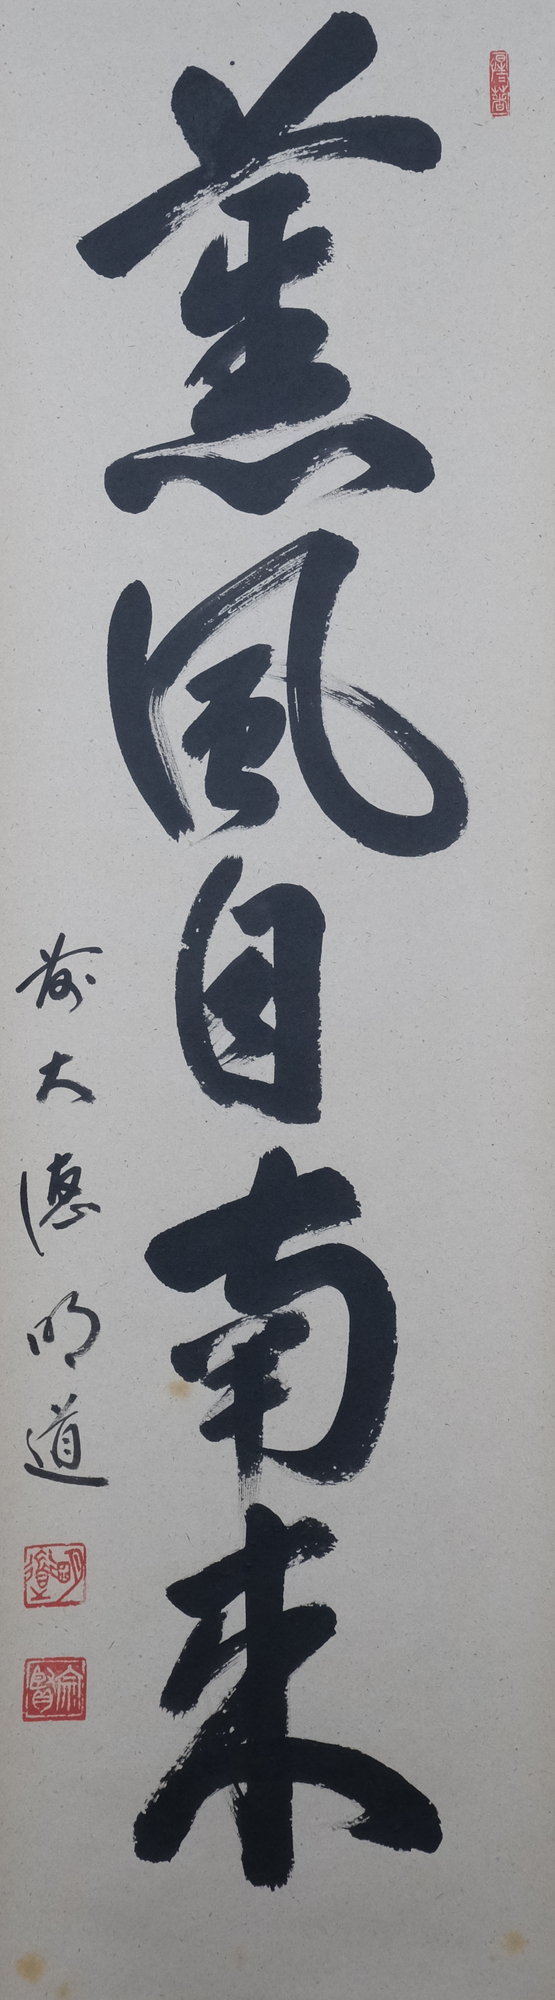 薫風自南来
前大徳明道
明道